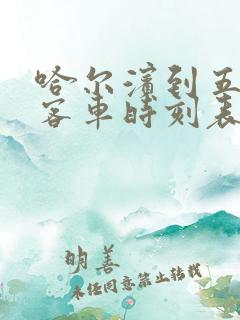 哈尔滨到五
客车时刻表
明善
未经同意禁止转载